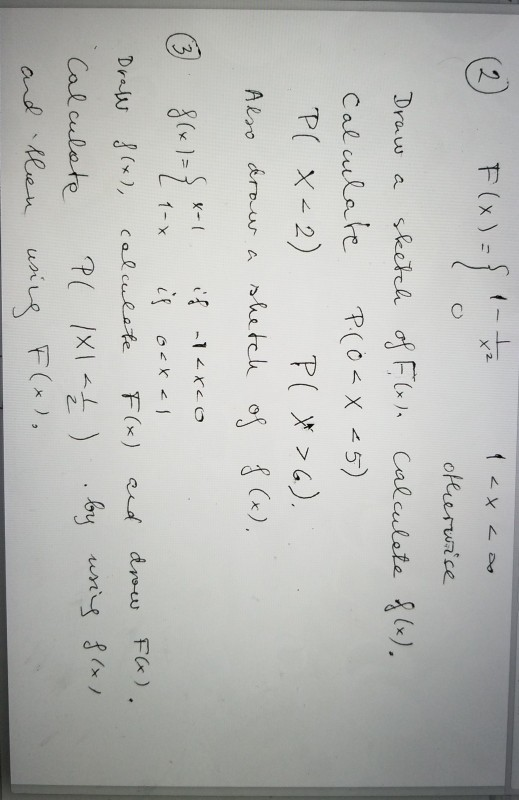 (2) F(x) = { 1 - 1/x² 1 < x < ∞
0 otherwise
Draw a sketch of F(x). Calculate f(x).
Calculate P(0 < X < 5)
P( X < 2) P( X > 6).
Also draw a sketch of f(x).
(3) f(x) = { x-1 if -1 < x < 0
1-x if 0 < x < 1
Draw f(x), calculate F(x) and draw F(x).
Calculate P( |X| < 1/2 ) . by using f(x)
and then using F(x).